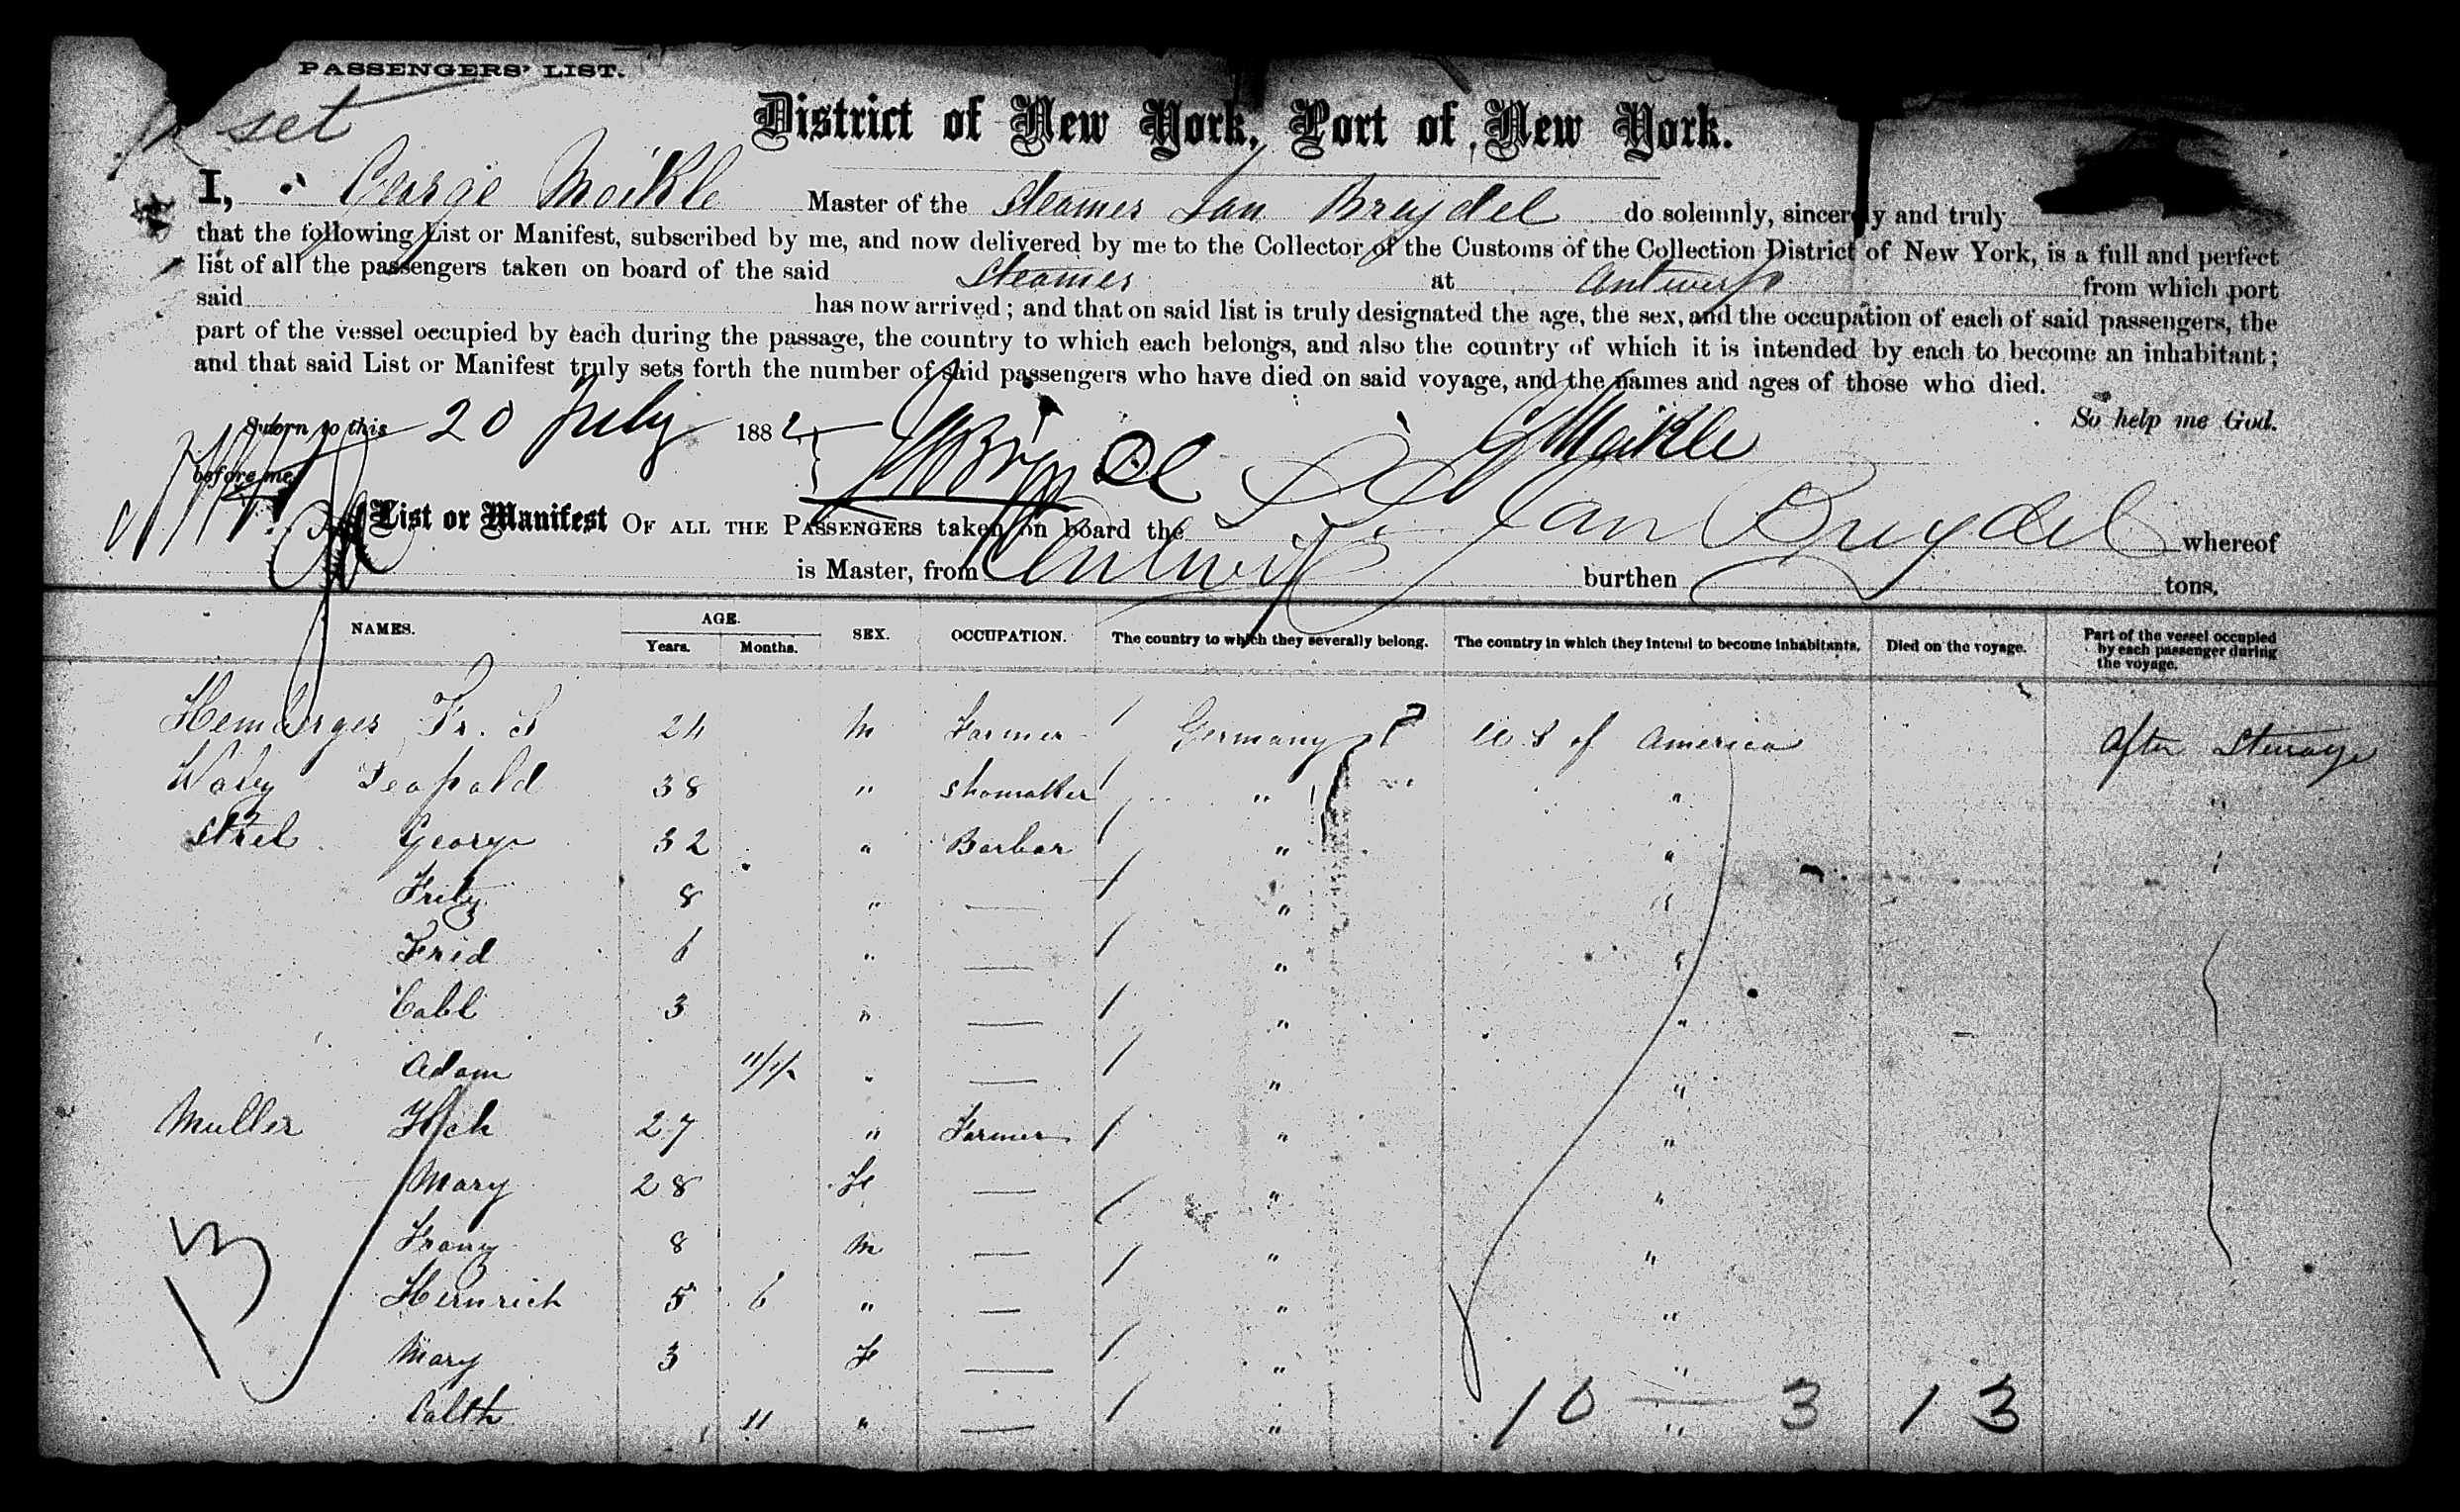 PASSENGERS' LIST.
set
District of New York, Port of New York.
I, George Meikle Master of the Steamer Jan Breydel do solemnly, sincerely and truly
that the following List or Manifest, subscribed by me, and now delivered by me to the Collector of the Customs of the Collection District of New York, is a full and perfect
list of all the passengers taken on board of the said Steamer at Antwerp from which port
said has now arrived; and that on said list is truly designated the age, the sex, and the occupation of each of said passengers, the
part of the vessel occupied by each during the passage, the country to which each belongs, and also the country of which it is intended by each to become an inhabitant;
and that said List or Manifest truly sets forth the number of said passengers who have died on said voyage, and the names and ages of those who died.
So help me God.
Sworn to this 20 July 1882
before me G Meikle
List or Manifest OF ALL THE PASSENGERS taken on board the S.S. Jan Breydel whereof
is Master, from Antwerp burthen tons.
NAMES. AGE. Years. Months. SEX. OCCUPATION. The country to which they severally belong. The country in which they intend to become inhabitants. Died on the voyage. Part of the vessel occupied by each passenger during the voyage.
Fr. 24 M Farmer / Germany U S of America After Steerage
Leopold 38 " Shomakker / " " "
George 32 " Barbar / " " "
Fritz 8 " — / " "
Frid 6 " — / " "
3 " — / " "
Adam " — / " "
Muller Hch 27 " Farmer / " "
Mary 28 F — / " "
Franz 8 M — / " "
Heinrich 5 6 " — / " "
Mary 3 F — / " "
Cath 11 " — / " "
10 — 3 13
13